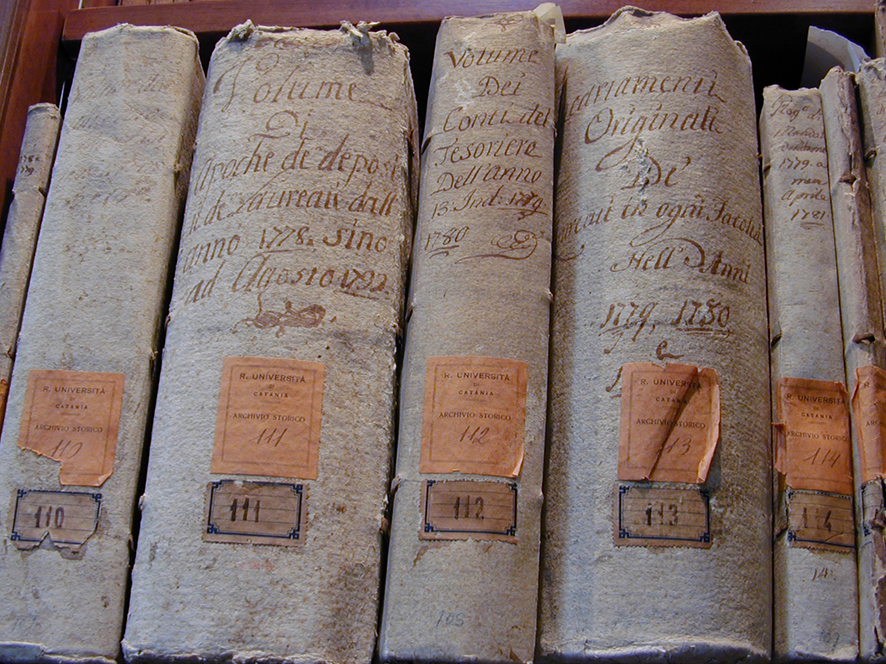 1778 e
R. UNIVERSITÀ
DI
CATANIA
ARCHIVIO STORICO
110
110
Volume
Di
Apoche de deposi
ti de Laureati dall
anno 1778. sino
ad Agosto 1792
R. UNIVERSITÀ
DI
CATANIA
ARCHIVIO STORICO
111
111
Volume
Dei
Conti del
Tesoriere
Dell'anno
13. Ind: 1779
1780
R. UNIVERSITÀ
DI
CATANIA
ARCHIVIO STORICO
112
112
105
Originali
De'
in ogni Facoltà
Nell' Anni
1779, 1780
R. UNIVERSITÀ
DI
CATANIA
ARCHIVIO STORICO
113
113
1779. a
Aprile
1781
R. UNIVERSITÀ
DI
CATANIA
ARCHIVIO STORICO
114
114